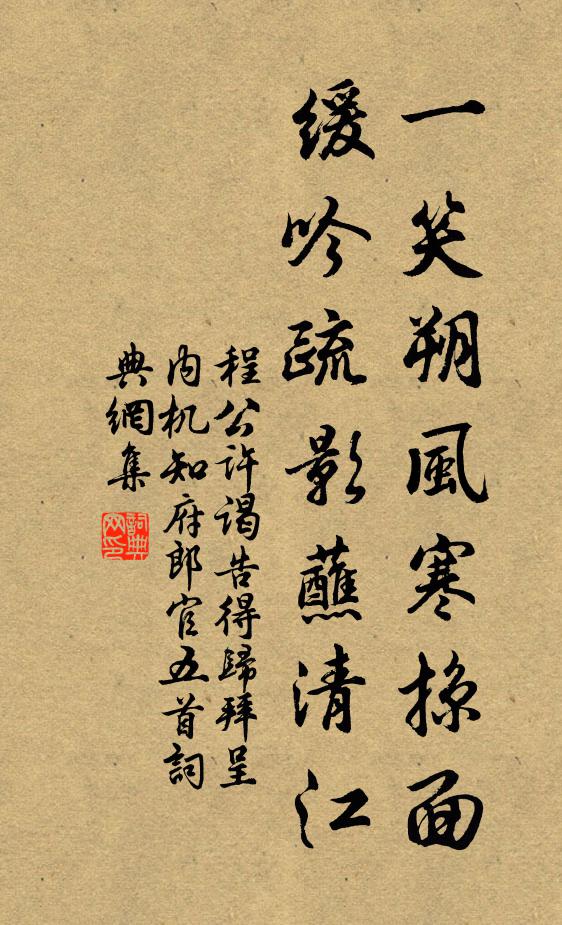 一笑朔風寒掠面
緩吟疏影蘸清江
程公許謁告得歸拜呈
内机知府郎官五首詞
典網集
詞典網印